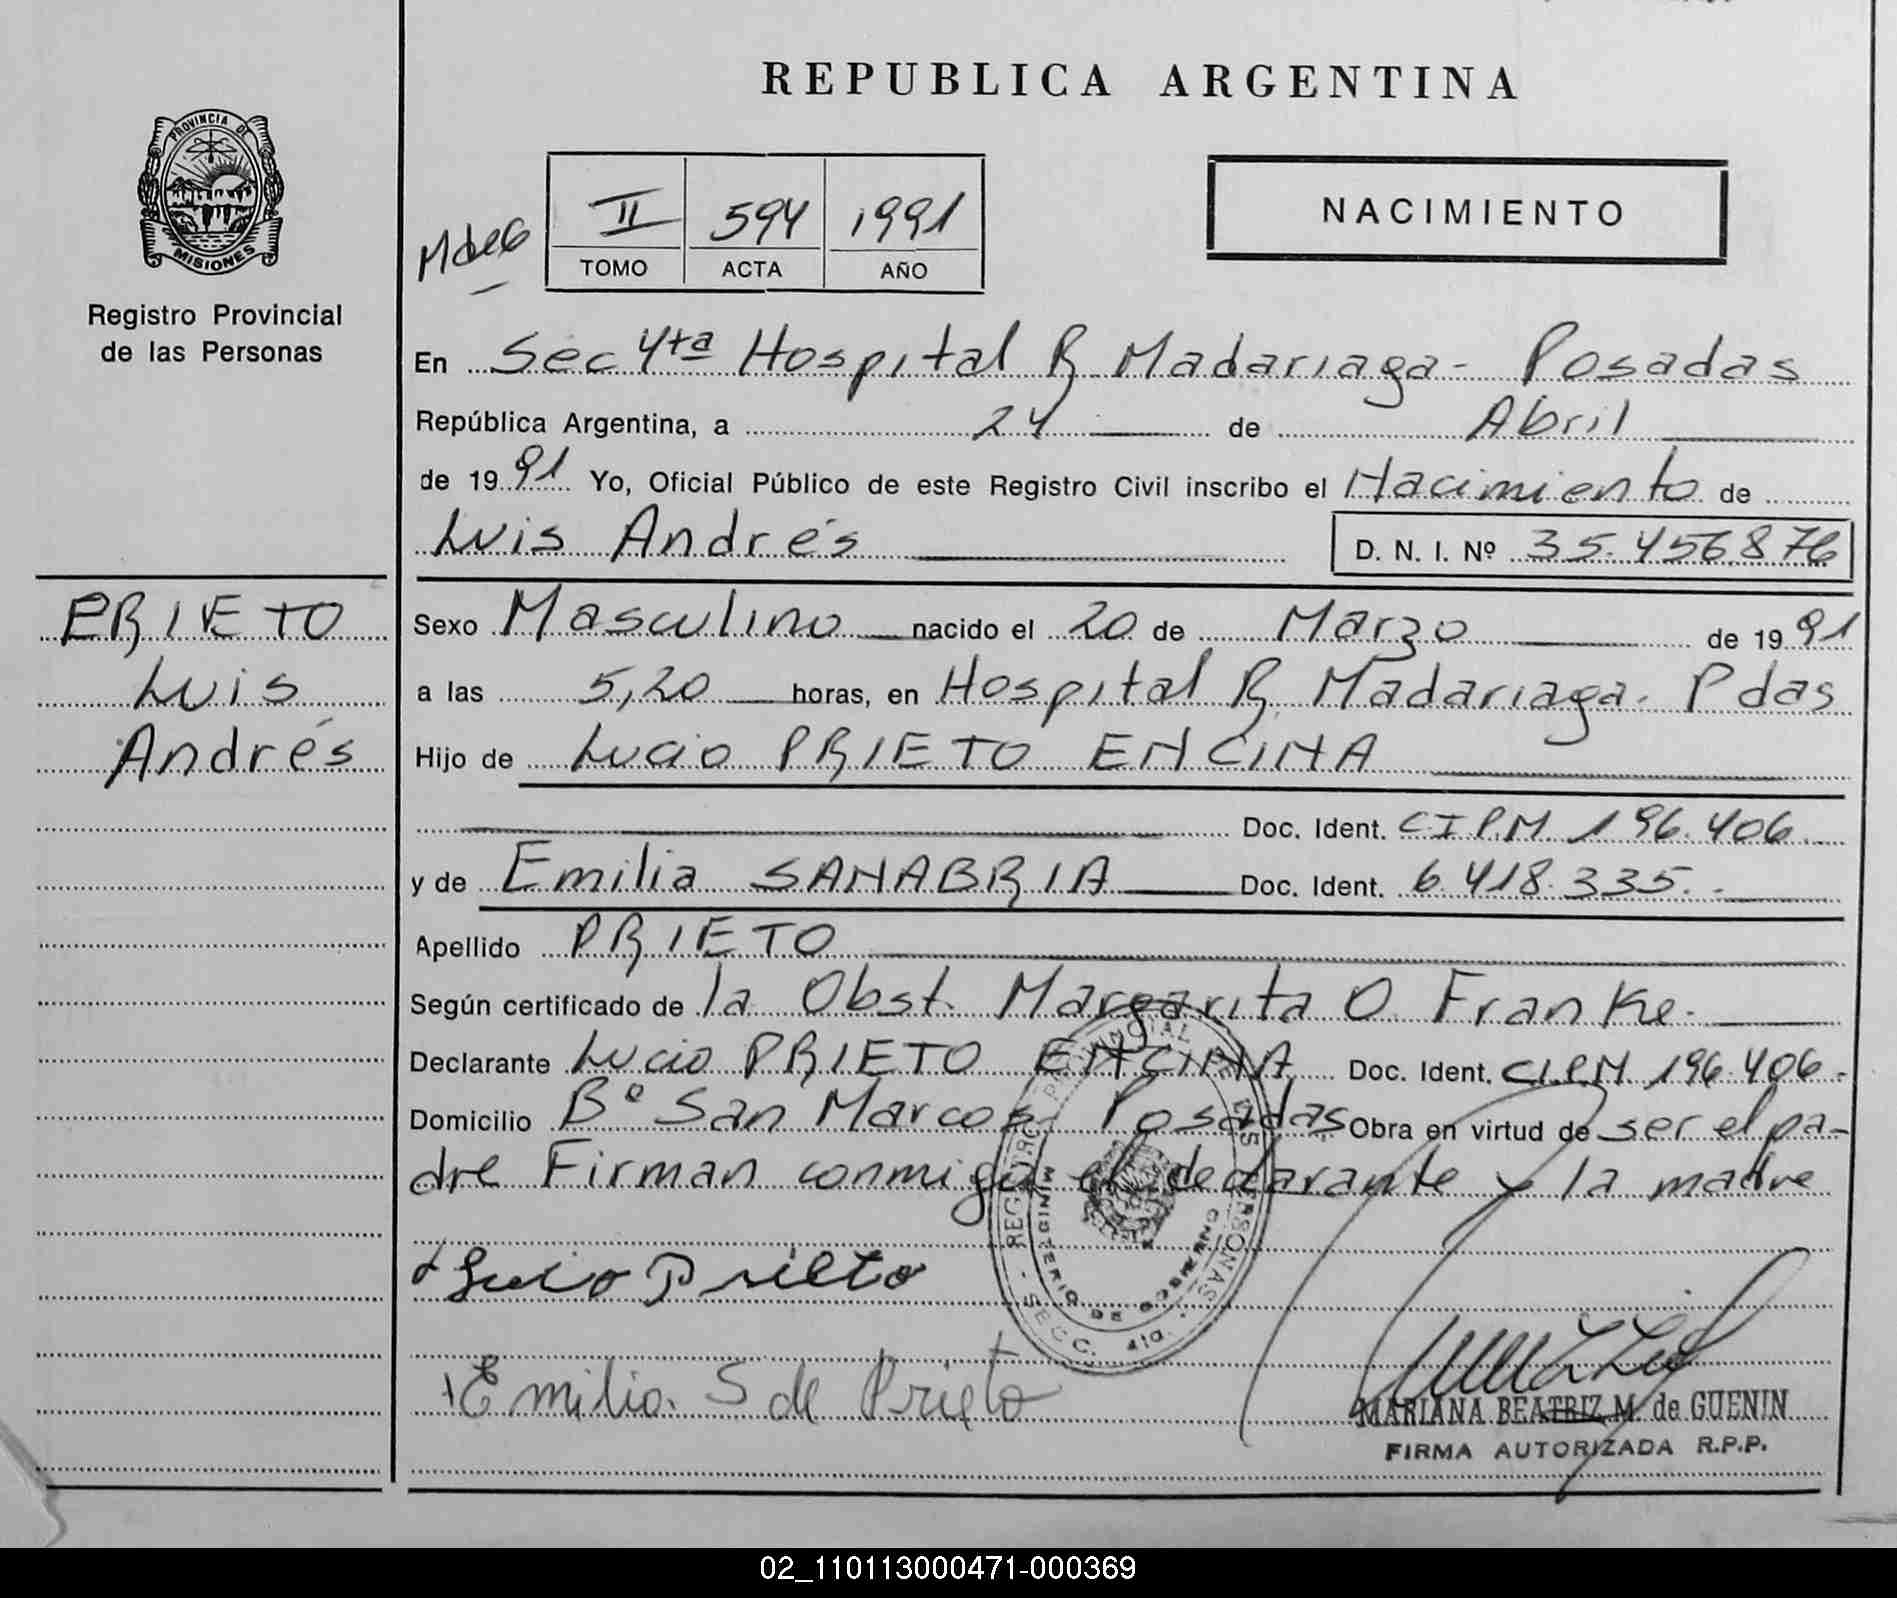 REPUBLICA ARGENTINA
PROVINCIA DE
MISIONES
Registro Provincial
de las Personas
II 594 1991
TOMO ACTA AÑO
NACIMIENTO
En Sec 4ta Hospital R Madariaga - Posadas
República Argentina, a 24 de Abril
de 1991 Yo, Oficial Público de este Registro Civil inscribo el Nacimiento de
Luis Andrés D. N. I. Nº 35.456.876
PRIETO
Luis
Andrés
Sexo Masculino nacido el 20 de Marzo de 1991
a las 5,20 horas, en Hospital R. Madariaga. Pdas
Hijo de Lucio PRIETO ENCINA
Doc. Ident. CIPM 196.406
y de Emilia SANABRIA Doc. Ident. 6.418.335.
Apellido PRIETO
Según certificado de la Obst. Margarita O Franke.
Declarante Lucio PRIETO ENCINA Doc. Ident. CIPM 196.406.
Domicilio Bº San Marcos - Posadas Obra en virtud de ser el pa-
dre Firman conmigo el declarante y la madre
REGISTRO PROVINCIAL DE LAS PERSONAS - SECC. 4ta.
MINISTERIO DE GOBIERNO
Lucio Prieto
Emilia. S de Prieto
MARIANA BEATRIZ M. de GUENIN
FIRMA AUTORIZADA R.P.P.
02_110113000471-000369